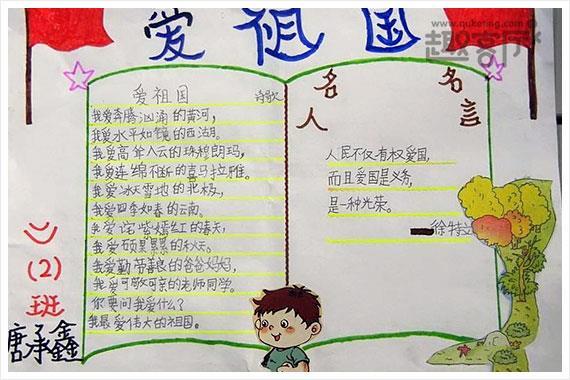 www.quketing.com
爱祖国
爱祖国 诗歌
我爱奔腾汹涌的黄河，
我爱水平如镜的西湖，
我爱高耸入云的珠穆朗玛，
我爱连绵不断的喜马拉雅。
我爱冰天雪地的北极，
我爱四季如春的云南。
我爱姹紫嫣红的春天，
我爱硕果累累的秋天。
我爱勤劳善良的爸爸妈妈，
我爱可敬可亲的老师同学。
你要问我爱什么？
我最爱伟大的祖国。
名人名言
人民不仅有权爱国，
而且爱国是义务，
是一种光荣。
徐特立
(2)
班
唐承鑫